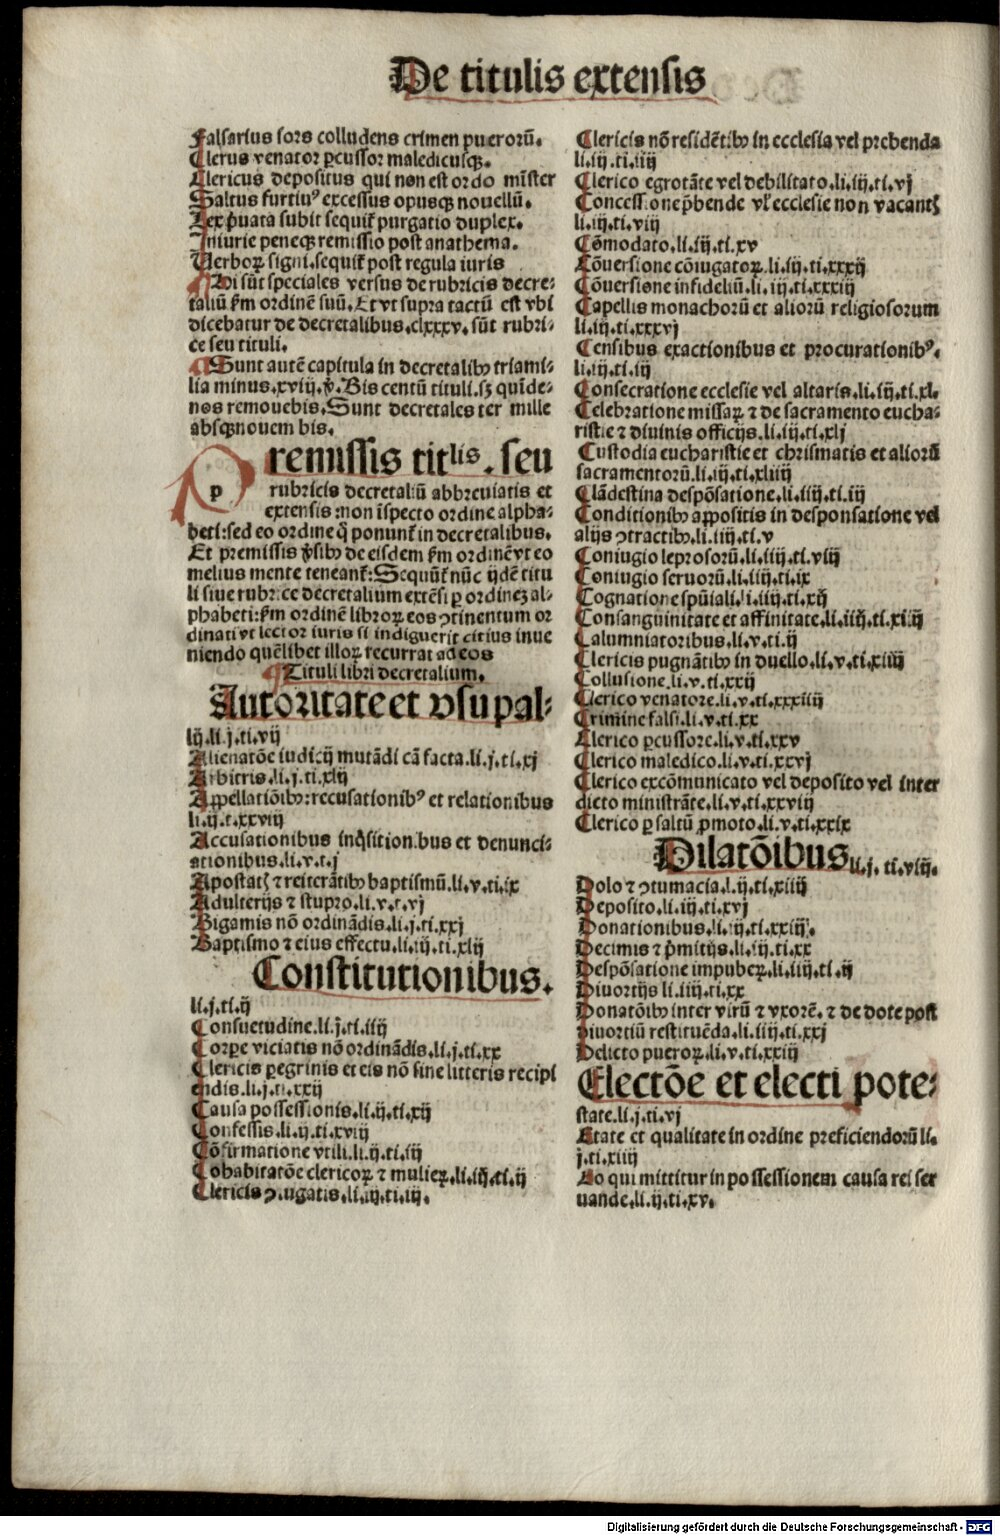 De titulis extensis
Falsarius sors colludens crimen puerorū.
Clerus venator ꝑcussor maledicusqꝫ.
Clericus depositus qui non est ordo mīster
Saltus furtiuꝰ excessus opusqꝫ nouellū.
Lex p̄uata subit sequit᷑ purgatio duplex.
Iniurie peneqꝫ remissio post anathema.
Uerboꝝ signi.sequit᷑ post regula iuris
¶ Isti sūt speciales versus de rubricis decre⸗
taliū ẜm ordinē suū. Et vt supra tactū est vbi
dicebatur de decretalibus.clxxxv.sūt rubri⸗
ce seu tituli.
¶ Sunt autē capitula in decretalibꝫ triami⸗
lia minus.xviij.ꝟ. Bis centū tituli.sꝫ quīde⸗
nos remouebis. Sunt decretales ter mille
absqꝫ nouem bis.
p
remissis titlis. seu
rubricis decretaliū abbreuiatis et
extensis: non īspecto ordine alpha⸗
beti: sed eo ordine q̄ ponunt᷑ in decretalibus.
Et premissis ꝟsibꝫ de eisdem ẜm ordinē vt eo
melius mente teneant᷑: Sequūt᷑ nūc ijdē titu
li siue rubrice decretalium extēsi ꝑ ordineꝫ al⸗
phabeti: ẜm ordinē libroꝝ eos ꝯtinentum or
dinati vt lector iuris si indiguerit citius inue
niendo quēlibet illoꝝ recurrat ad eos
¶ Tituli libri decretalium.
Autoritate et vsu pal⸗
lij.li.j.ti.vij
Alienatōe iudicij mutādi cā facta.li.j.ti.xj
Arbitris.li.j.ti.xlij
Appellatiōibꝫ: recusationibꝰ et relationibus
li.ij.t.xxviij
Accusationibus inq̄sition.bus et denunci⸗
ationibus.li.v.t.j
Apostatꝭ ⁊ reiterātibꝫ baptismū.li.v.ti.ix
Adulterijs ⁊ stupro.li.v.t.vj
Bigamis nō ordinādis.li.j.ti.xxj
Baptismo ⁊ eius effectu.li.iij.ti.xlij
Constitutionibus.
li.j.ti.ij
Consuetudine.li.j.ti.iiij
Corpꝑe viciatis nō ordinādis.li.j.ti.xx
Clericis ꝑegrinis et eis nō sine litteris recipi
endis.li.j.ti.xxij
Causa possessionis.li.ij.ti.xij
Confessis.li.ij.ti.xviij
Cōfirmatione vtili.li.ij.ti.iij
Cohabitatōe clericoꝝ ⁊ mulieꝝ.li.iij.ti.ij
Clericis ꝯiugatis.li.iij.ti.iij.
Clericis nō residētibꝫ in ecclesia vel prebenda
li.iij.ti.iiij
Clerico egrotāte vel debilitato.li.iij.ti.vj
Concessione p̄bende vl̓ ecclesie non vacantꝭ
li.iij.ti.viij
Cōmodato.li.iij.ti.xv
Cōuersione cōiugatoꝝ.li.iij.ti.xxxij
Cōuersione infideliū.li.iij.ti.xxxiij
Capellis monachorū et aliorū religiosorum
li.iij.ti.xxxvj
Censibus exactionibus et procurationibꝰ.
li.iij.ti.ij
Consecratione ecclesie vel altaris.li.iij.ti.xl.
Celebratione missaꝝ ⁊ de sacramento eucha⸗
ristie ⁊ diuinis officijs.li.iij.ti.xlj
Custodia eucharistie et chrismatis et aliorū
sacramentorū.li.iij.ti.xliiij
Clādestina despōsatione.li.iiij.ti.iij
Conditionibꝫ appositis in desponsatione vel
alijs ꝯtractibꝫ.li.iiij.ti.v
Coniugio leprosorū.li.iiij.ti.viij
Coniugio seruorū.li.iiij.ti.ix
Cognatione spūiali.li.iiij.ti.xij
Consanguinitate et affinitate.li.iiij.ti.xiiij
Calumniatoribus.li.v.ti.ij
Clericis pugnātibꝫ in duello.li.v.ti.xiiij
Collusione.li.v.ti.xxij
Clerico venatore.li.v.ti.xxxiiij
Crimine falsi.li.v.ti.xx
Clerico ꝑcussore.li.v.ti.xxv
Clerico maledico.li.v.ti.xxvj
Clerico excōmunicato vel deposito vel inter
dicto ministrāte.li.v.ti.xxviij
Clerico ꝑ saltū ꝓmoto.li.v.ti.xxix
Dilatōibus li.j. ti.viij.
Dolo ⁊ ꝯtumacia.l.ij.ti.xiiij
Deposito.li.iij.ti.xvj
Donationibus.li.iij.ti.xxiiij.
Decimis ⁊ p̄mitijs.li.iij.ti.xx
Despōsatione impubeꝝ.li.iiij.ti.ij
Diuortijs li.iiij.ti.xx
Donatōibꝫ inter virū ⁊ vxorē. ⁊ de dote post
diuortiū restituēda.li.iiij.ti.xxj
Delicto pueroꝝ.li.v.ti.xxiij
Electōe et electi pote⸗
state.li.j.ti.vj
Etate et qualitate in ordine preficiendorū li.
j.ti.xiiij
Eo qui mittitur in possessionem causa rei ser
uande.li.ij.ti.xv.
Digitalisierung gefördert durch die Deutsche Forschungsgemeinschaft - DFG